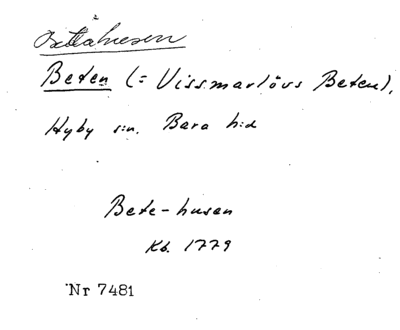 Beten (= Vissmarlövs Beten),
Hyby s:n. Bara h:d
Bete-husen
Kb. 1779
Nr 7481